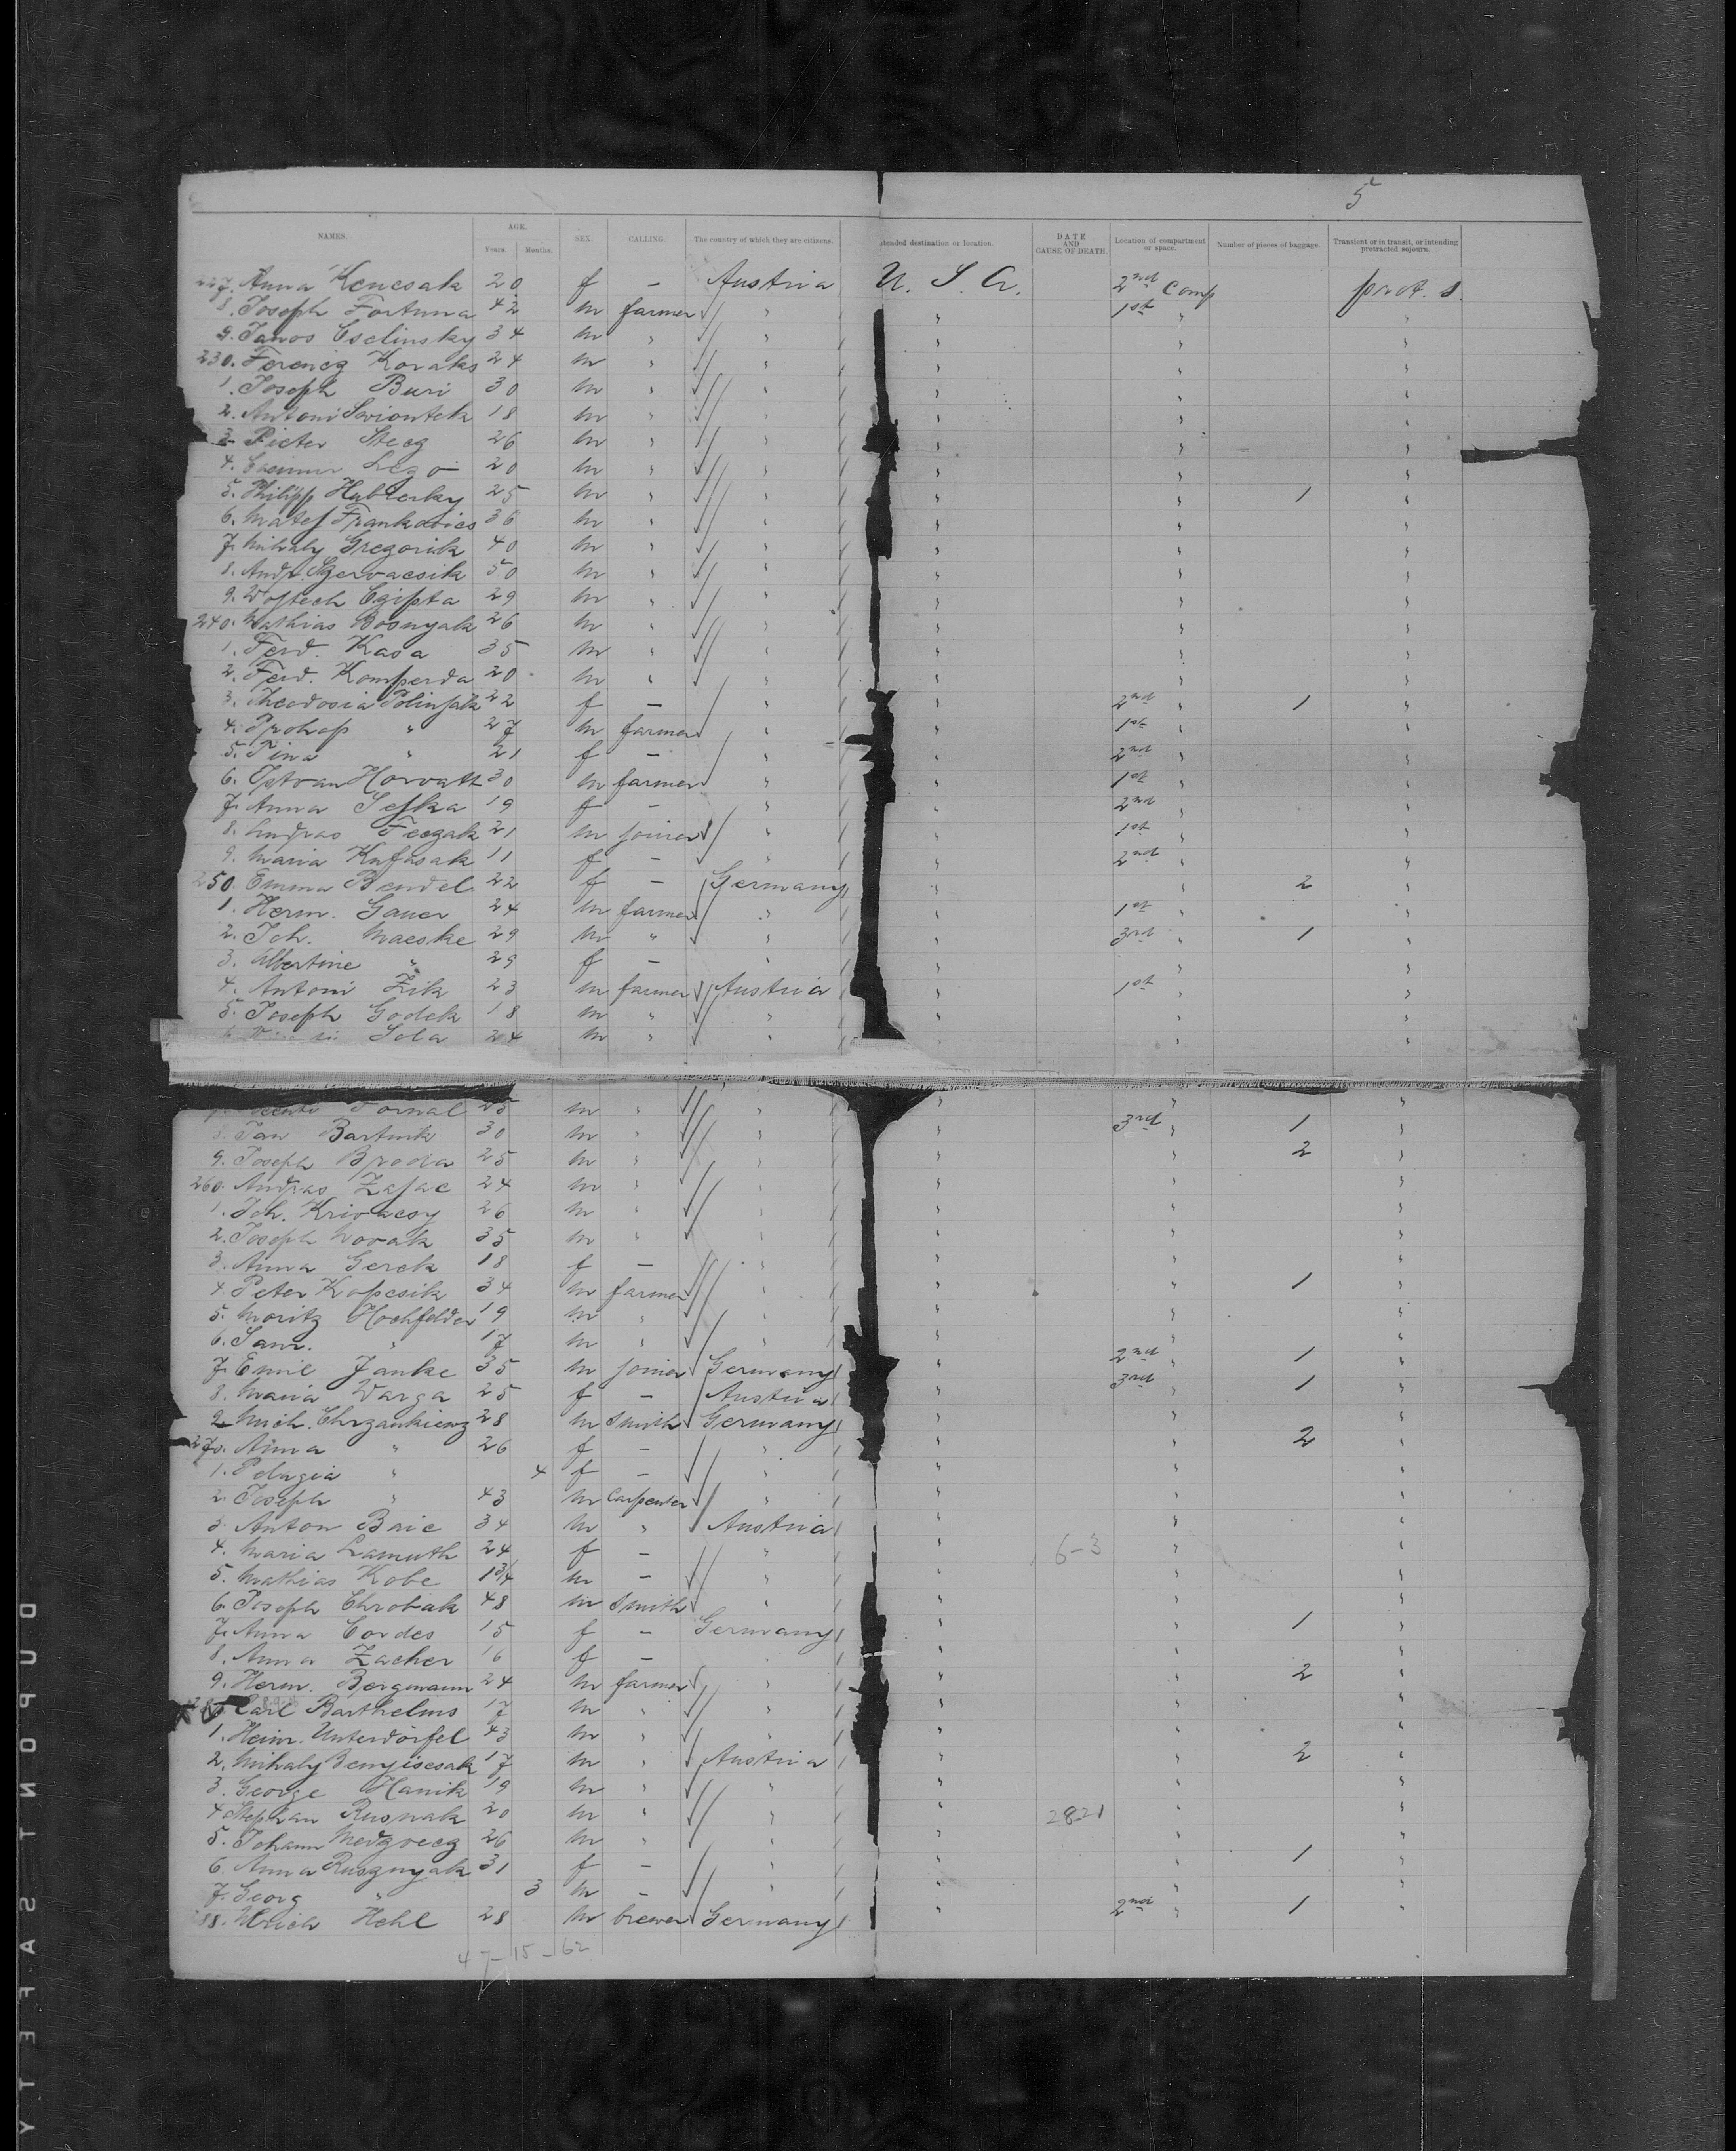 5
NAMES. AGE. Years. Months. SEX. CALLING. The country of which they are citizens. tended destination or location. DATE AND CAUSE OF DEATH. Location of compartment or space. Number of pieces of baggage. Transient or in transit, or intending protracted sojourn.
227. Anna Kenesak 20 f — Austria U. S. A. 2nd Comp prot. s.
8. Joseph Fortuna 42 m farmer " " 1st " "
9. Janos Cselinsky 34 m " " " " "
230. Ferencz Kovaks 24 m " " " " "
1. Joseph Buri 30 m " " " " "
2. Antoni Swiontek 18 m " " " " "
3. Pieter Stecz 26 m " " " " "
4. Casimir 20 m " " " " "
5. Philipp Hublerky 25 m " " " " 1 "
6. Matej Frankovics 36 m " " " " "
7. Mihaly Gregorik 40 m " " " " "
8. Andr. Szervacsik 50 m " " " " "
9. Wojtech Egipta 29 m " " " " "
240. Mathias Bosnyak 26 m " " " " "
1. Ferd. Kasa 35 m " " " " "
2. Ferd. Komperda 20 m " " " " "
3. Theodosia Polinjak 22 f — " " 2nd " 1 "
4. Prokop " 27 m farmer " " 1st " "
5. Pina " 21 f — " " 2nd " "
6. Istvan Horvath 30 m farmer " " 1st " "
7. Anna Sejka 19 f — " " 2nd " "
8. Andras Feczak 21 m joiner " " 1st " "
9. Maria Knjasak 11 f — " " 2nd " "
250. Emma Bendel 22 f — Germany " " 2 "
1. Herm. Gauer 24 m farmer " " 1st " "
2. Joh. Maeske 29 m " " " 3rd " 1 "
3. Albertine " 29 f — " " " "
4. Antoni Zik 23 m farmer Austria " 1st " "
5. Joseph Godek 18 m " " " " "
6. Sola 24 m " " " " "
7. Fornal 25 m " " " " "
8. Jan Bartnik 30 m " " " 3rd " 1 "
9. Joseph Broda 25 m " " " " 2 "
260. Andras Zajac 24 m " " " " "
1. Joh. Krivacsy 26 m " " " " "
2. Joseph Novak 35 m " " " " "
3. Anna Gerek 18 f — " " " "
4. Peter Kopcsik 34 m farmer " " " 1 "
5. Moritz Hochfelder 19 m " " " " "
6. Sam. " 17 m " " " " "
7. Emil Janke 35 m joiner Germany " 2nd " 1 "
8. Maria Varga 25 f — Austria " 3rd " 1 "
9. Mich. Chrzankiewz 28 m smith Germany " " "
270. Anna " 26 f — " " " 2 "
1. Pelagia " 4 f — " " " "
2. Joseph " 43 m Carpenter " " " "
3. Anton Baic 34 m " Austria " " "
4. Maria Lamuth 24 f — " " 6-3 " "
5. Mathias Kobe 1 3/4 m — " " " "
6. Joseph Chrobak 48 m smith " " " "
7. Anna Cordes 15 f — Germany " " 1 "
8. Anna Zacher 16 f — " " " "
9. Herm. Bergmann 24 m farmer " " " 2 "
280. Carl Barthelms 17 m " " " " "
1. Heinr. Unterdörfel 43 m " " " " "
2. Mihaly 17 m " Austria " " 2 "
3. George Hanik 19 m " " " " "
4. Stephan Rusnak 20 m " " " 2821 " "
5. Johann Medgvecz 26 m " " " " "
6. Anna Rusznyak 31 f — " " " 1 "
7. Georg " 3 m — " " " "
288. Ulrich Hehl 28 m brewer Germany " 2nd " 1 "
47-15-62
DUPONT SAFETY